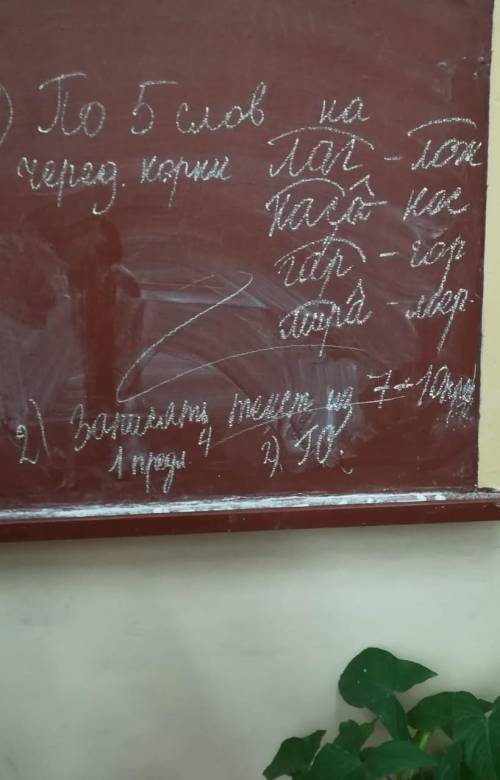 ) По 5 слов на
черед. корни лаг - лож
каса - кос
гар - гор
мира - мер
2) Записать текст из 7-
1 предл 4